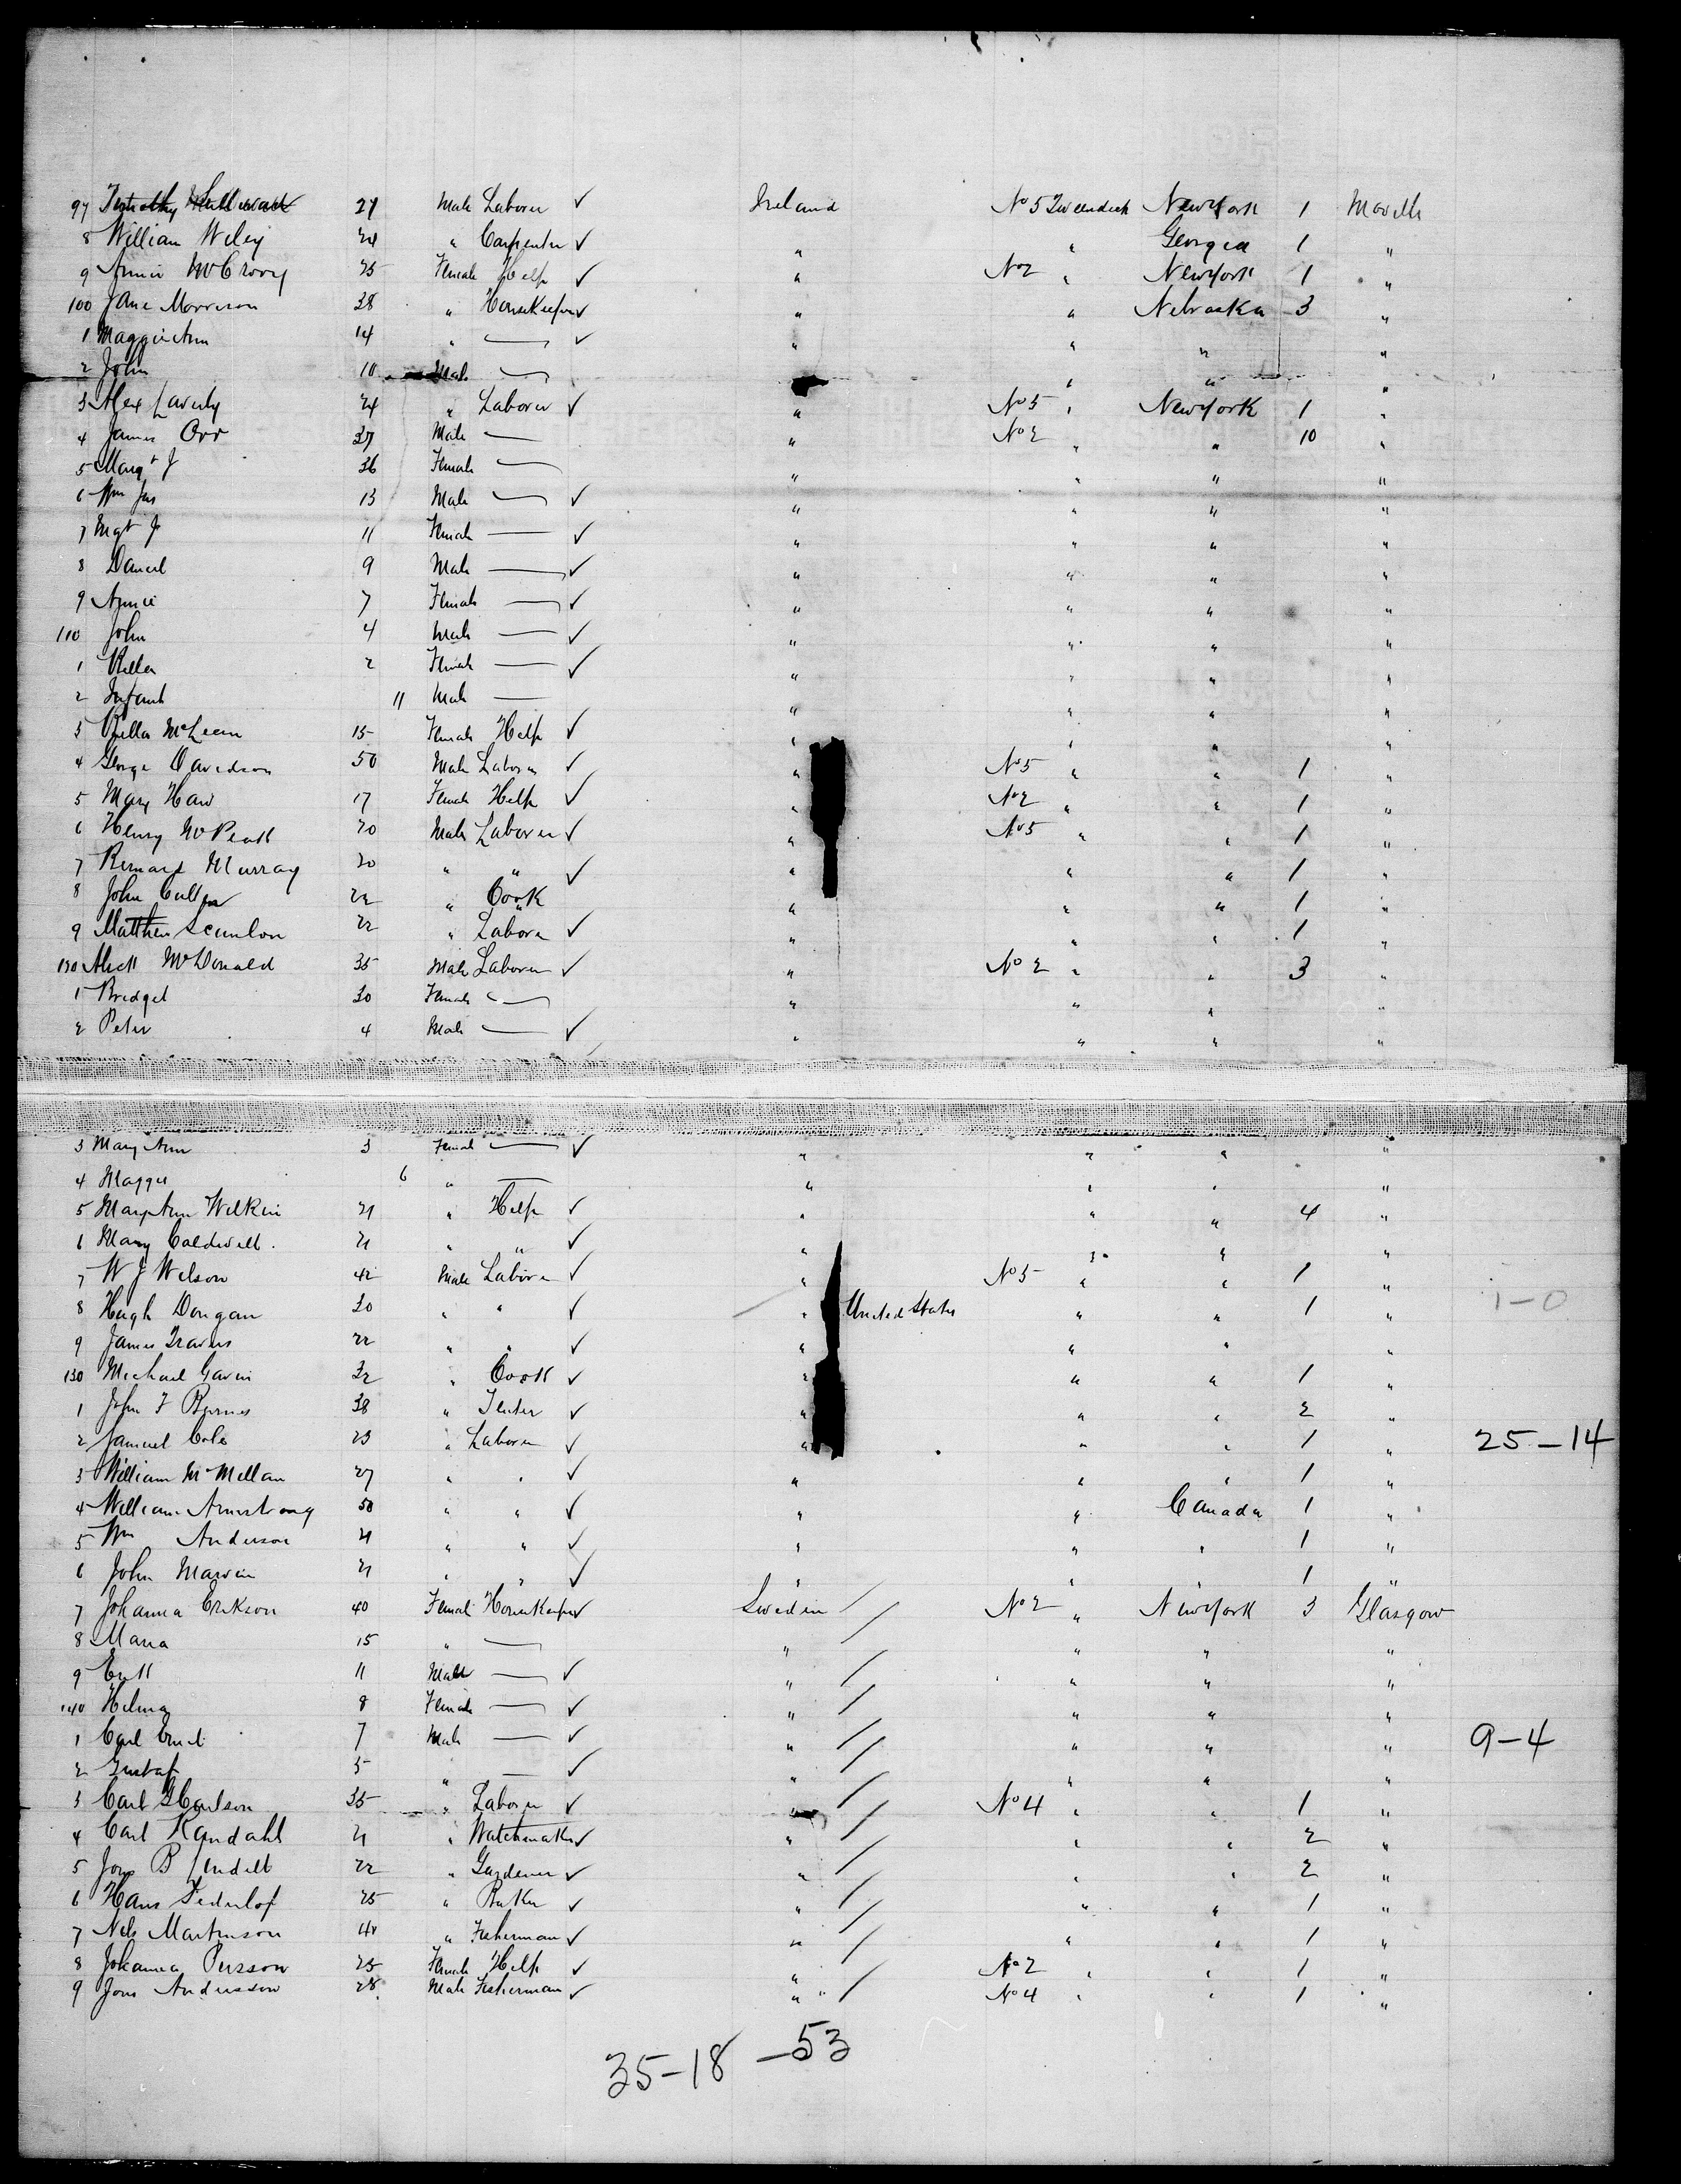 97 27 Male Laborer ✓ Ireland No 5 New York 1 Moville
8 William Wiley 24 " Carpenter ✓ " " Georgia 1 "
9 Annie McCrory 25 Female Help ✓ " No 2 " New York 1 "
100 Jane Morrison 38 " Housekeeper ✓ " " Nebraska 3 "
1 Maggie Ann 14 " — ✓ " " " "
2 John 10 Male — " " "
3 Alex Laverty 24 " Laborer ✓ " No 5 " New York 1 "
4 James Orr 37 Male — " No 2 " " 10 "
5 Margt J 36 Female — " " " "
6 Wm Jas 13 Male — ✓ " " " "
7 Mgt J 11 Female — ✓ " " " "
8 Daniel 9 Male — ✓ " " " "
9 Annie 7 Female — ✓ " " " "
110 John 4 Male — ✓ " " " "
1 2 Female — ✓ " " " "
2 Infant 11 Male — " " " "
3 McLean 15 Female Help ✓ " " " "
4 George Davidson 50 Male Laborer ✓ " No 5 " " 1 "
5 Mary Haw 17 Female Help ✓ " No 2 " " 1 "
6 Henry McPeak 20 Male Laborer ✓ " No 5 " " 1 "
7 Bernard Murray 20 " " ✓ " " " 1 "
8 John 22 " Cook " " " 1 "
9 Matthew Scanlon 22 " Laborer ✓ " " " 1 "
120 Alick McDonald 35 Male Laborer ✓ " No 2 " " 3 "
1 Bridget 30 Female — " " " "
2 Peter 4 Male — ✓ " " " "
3 Mary Ann 3 Female — ✓ " " " "
4 Maggie 6 " — " " " "
5 Mary Ann Wilkin 21 " Help ✓ " " " 4 "
6 Mary Caldwell 21 " " ✓ " " " "
7 W J Wilson 42 Male Laborer ✓ " No 5 " " 1 "
8 Hugh Dongan 30 " " ✓ " United States " " 1 " 1-0
9 James Travers 22 " " ✓ " " " "
130 Michael Gavin 32 " Cook ✓ " " " 1 "
1 John F Byrnes 38 " ✓ " " " 2 "
2 Samuel Cole 23 " Laborer ✓ " " " 1 " 25-14
3 William McMillan 27 " " ✓ " " " 1 "
4 William Armstrong 50 " " ✓ " " Canada 1 "
5 Wm Anderson 21 " " ✓ " " " 1 "
6 John Marvin 21 " " ✓ " " 1 "
7 Johanna Erikson 40 Female Housekeeper ✓ Sweden / No 2 " New York 3 Glasgow
8 Maria 15 " — " " " "
9 Erik 11 Male — ✓ " / " " "
140 Hilma 8 Female — ✓ " / " " "
1 Carl 7 Male — ✓ " / " " " 9-4
2 Gustaf 5 " — ✓ " / " " "
3 Carl G Carlson 35 " Laborer ✓ " / No 4 " " 1 "
4 Carl Randahl 21 " Watchmaker ✓ " / " " 2 "
5 B 22 " Gardener ✓ " / " " 2 "
6 Hans 25 " Baker ✓ " / " " 1 "
7 Nils Martinson 40 " Fisherman ✓ " / " " 1 "
8 Johanna Persson 25 Female Help ✓ " No 2 " " 1 "
9 Jons Andersson 28 Male Fisherman ✓ " / No 4 " " 1 "
35-18-53